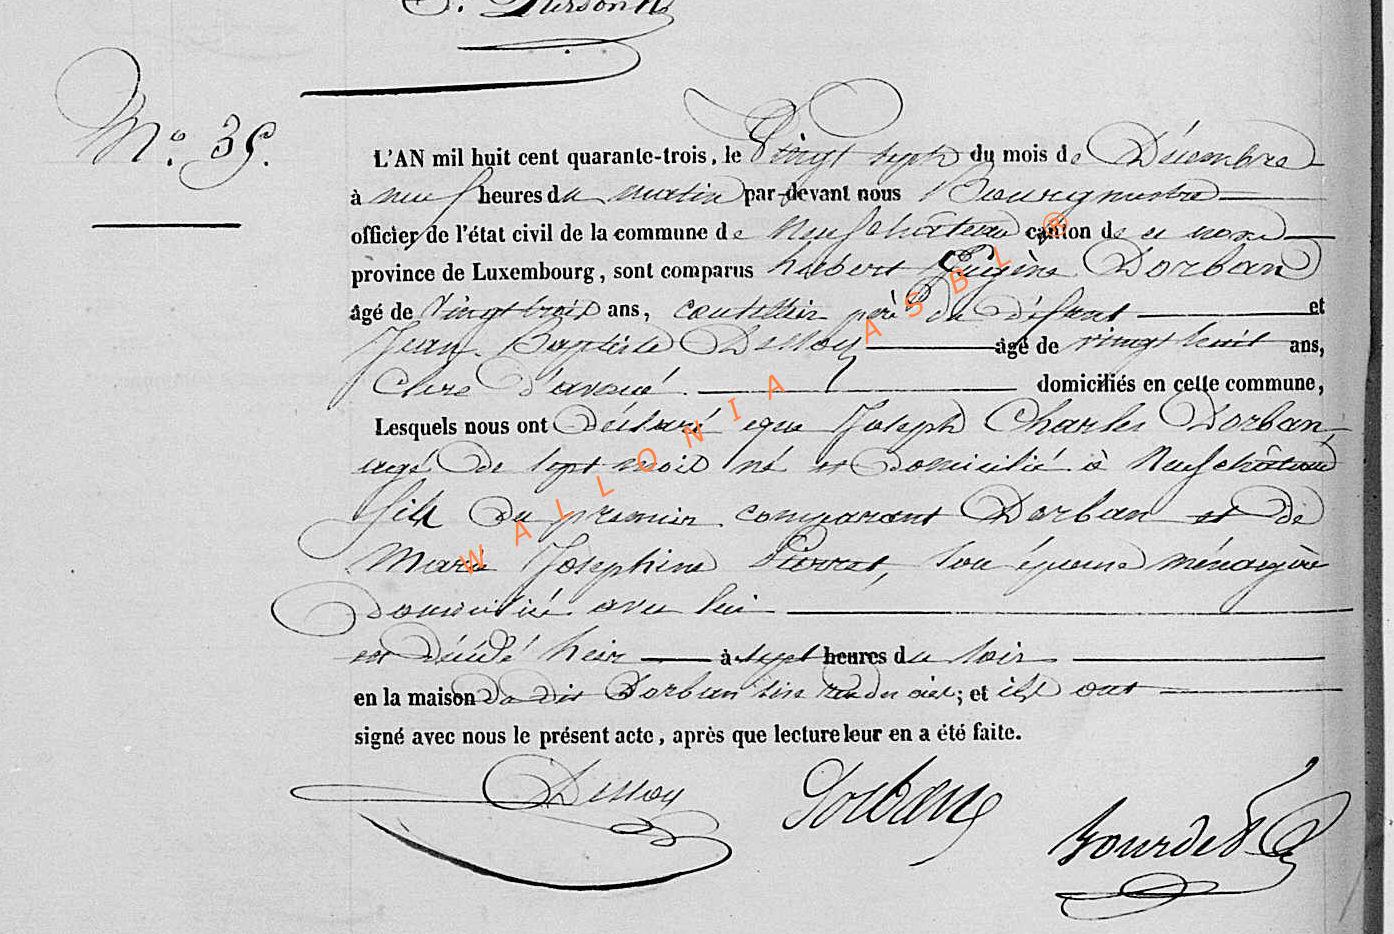 N.o 35.
L'AN mil huit cent quarante-trois, le Vingt sept du mois de Décembre
à neuf heures du matin par-devant nous Bourgmestre
officier de l'état civil de la commune de Neufchâteau canton de ce nom
province de Luxembourg, sont comparus hubert Eugène Dorban
âgé de vingt trois ans, coutellier père du défunt et
Jean Baptiste Dessoy âgé de vingt huit ans,
Clerc d'avoué domiciliés en cette commune,
Lesquels nous ont Déclaré que Joseph Charles Dorban,
agé de sept mois né et domicilié à Neufchâteau
fils du premier comparant Dorban et de
Marie Josephine Pierret, son épouse ménagère
domiciliée avec lui
est décédé hier à sept heures du soir
en la maison du dit Dorban ; et ils ont
signé avec nous le présent acte, après que lecture leur en a été faite.
Dessoy Dorban
WALLONIA ASBL ®